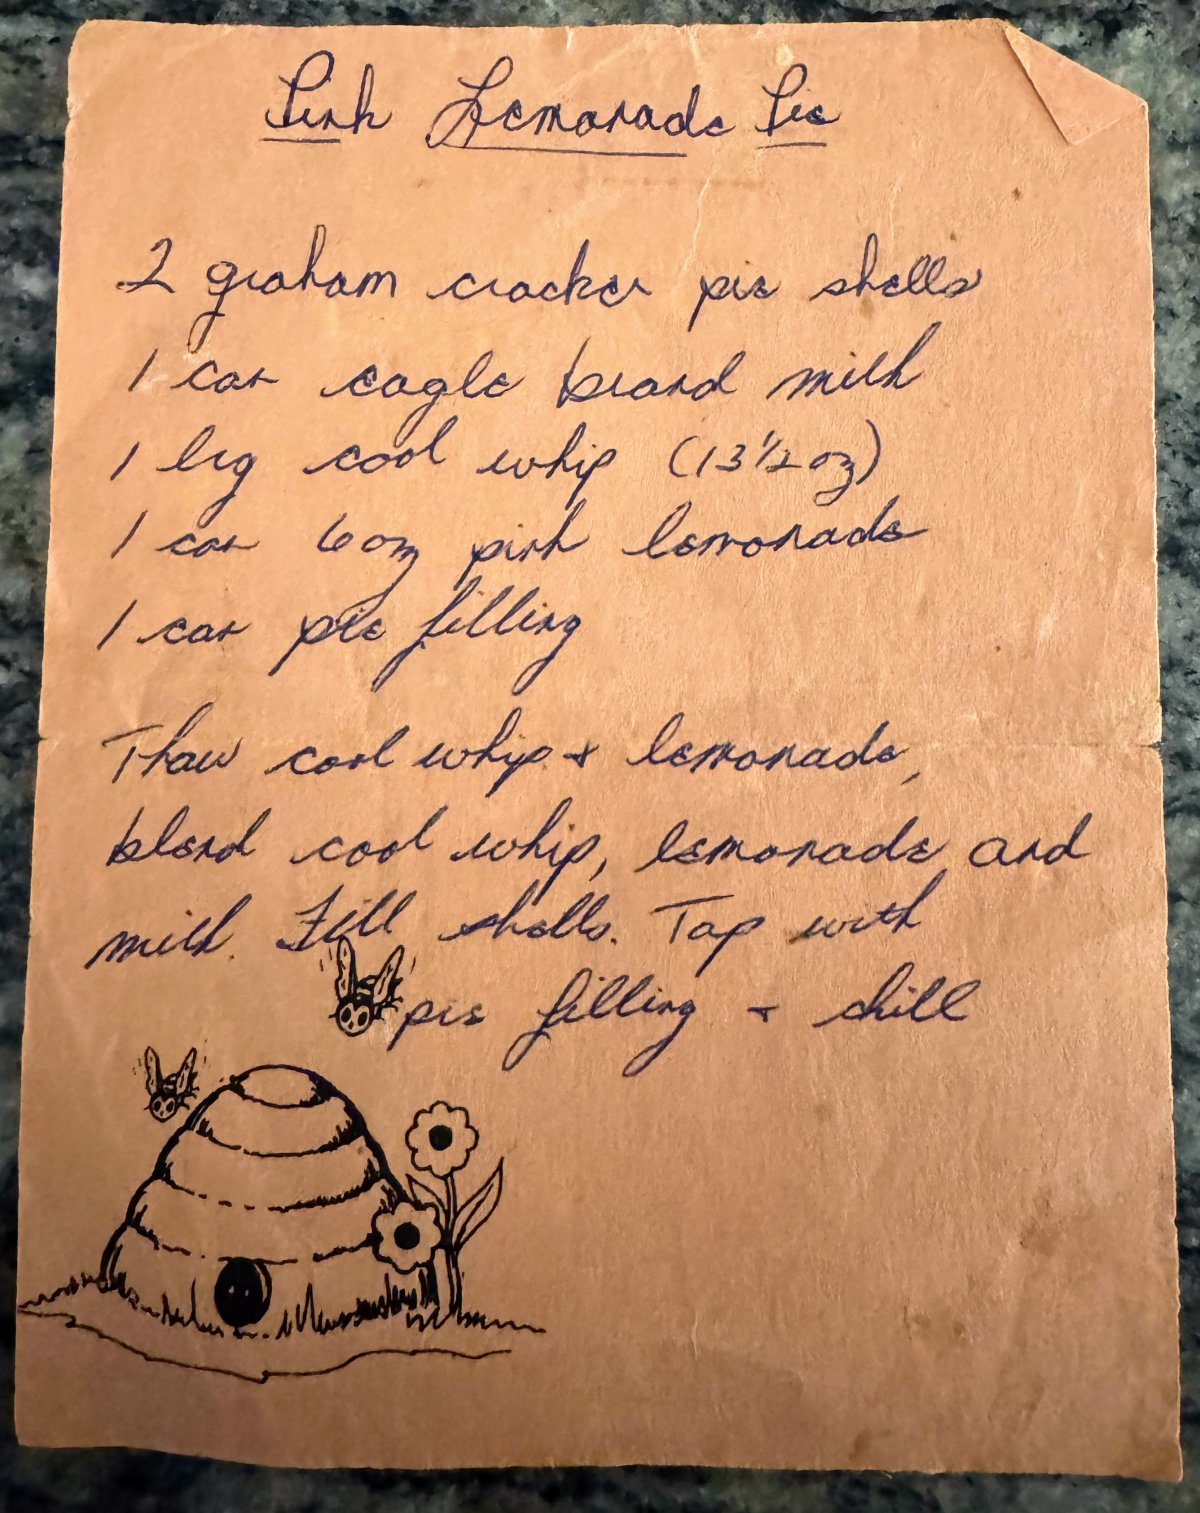 Pink Lemonade Pie
2 graham cracker pie shells
1 can eagle brand milk
1 lrg cool whip (13 1/2 oz)
1 can 6 oz pink lemonade
1 can pie filling
Thaw cool whip & lemonade,
blend cool whip, lemonade and
milk. Fill shells. Top with
pie filling & chill